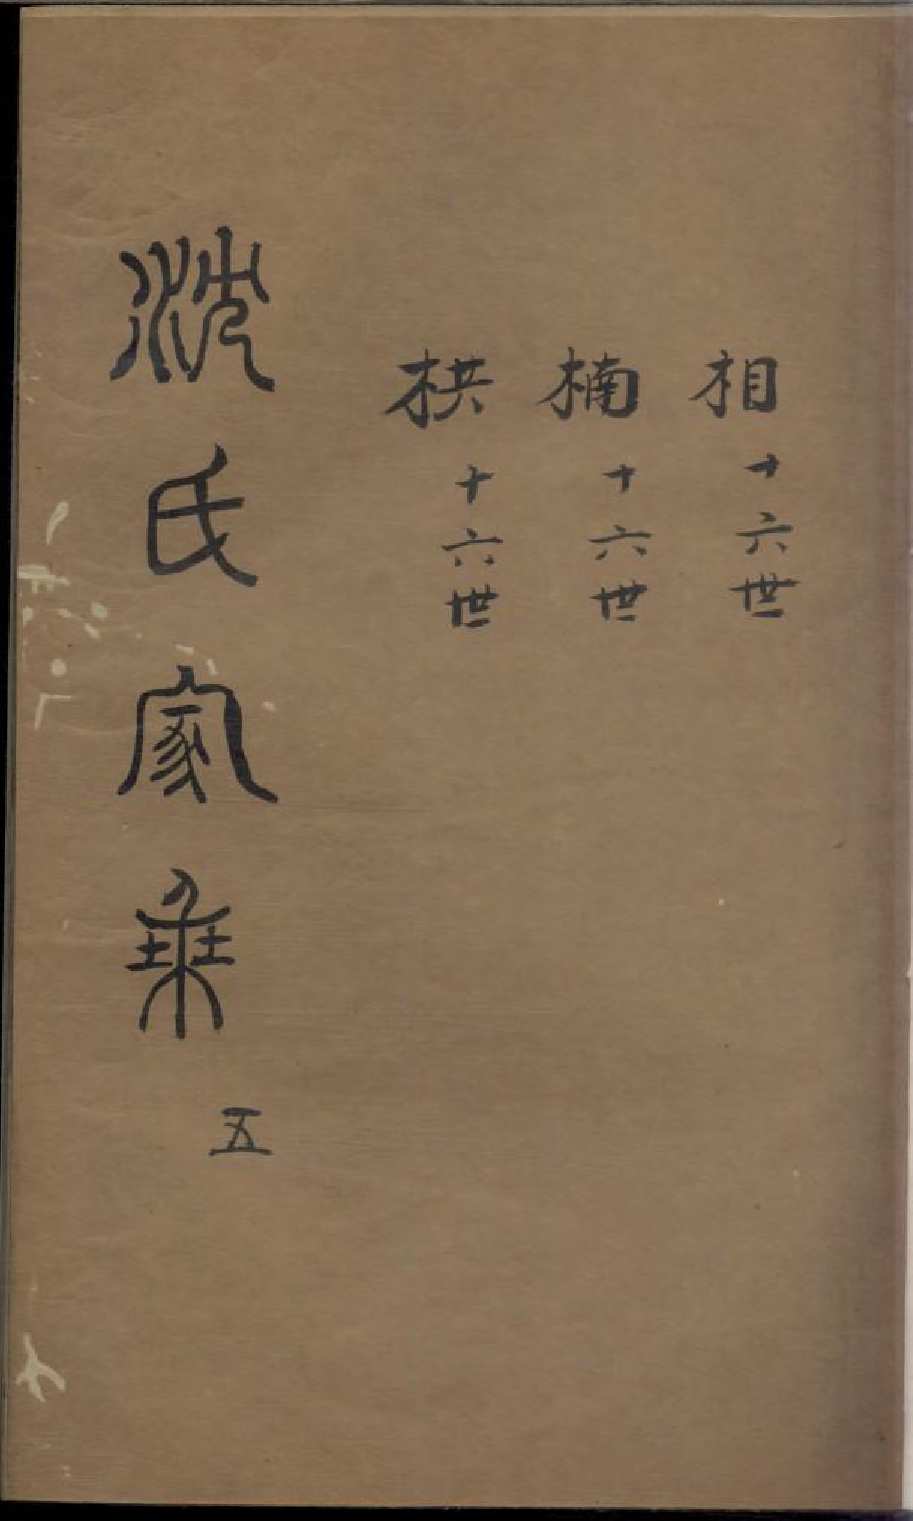 相十六世
楠十六世
栱十六世
沈氏家乗五